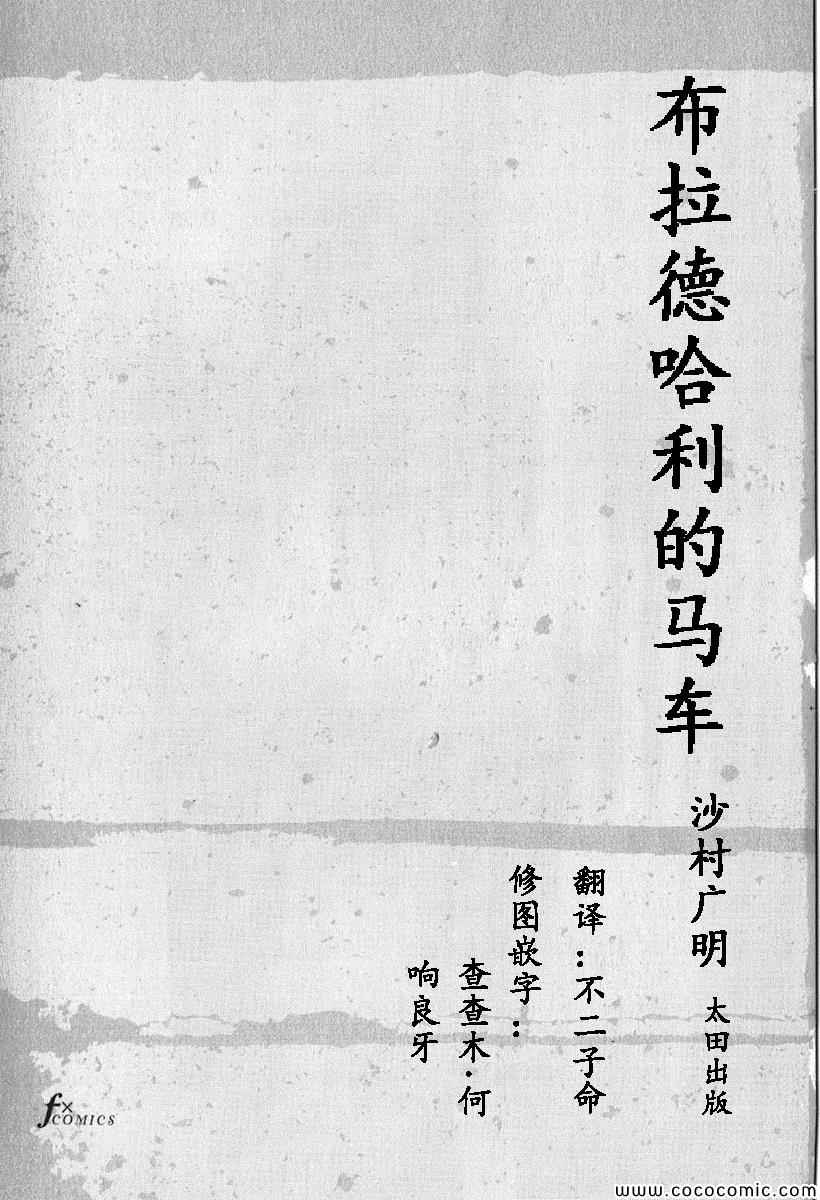 布拉德哈利的马车
沙村广明
太田出版
翻译：不二子命
修图嵌字：
查查木·何
响良牙
fx COMICS
www.cococomic.com